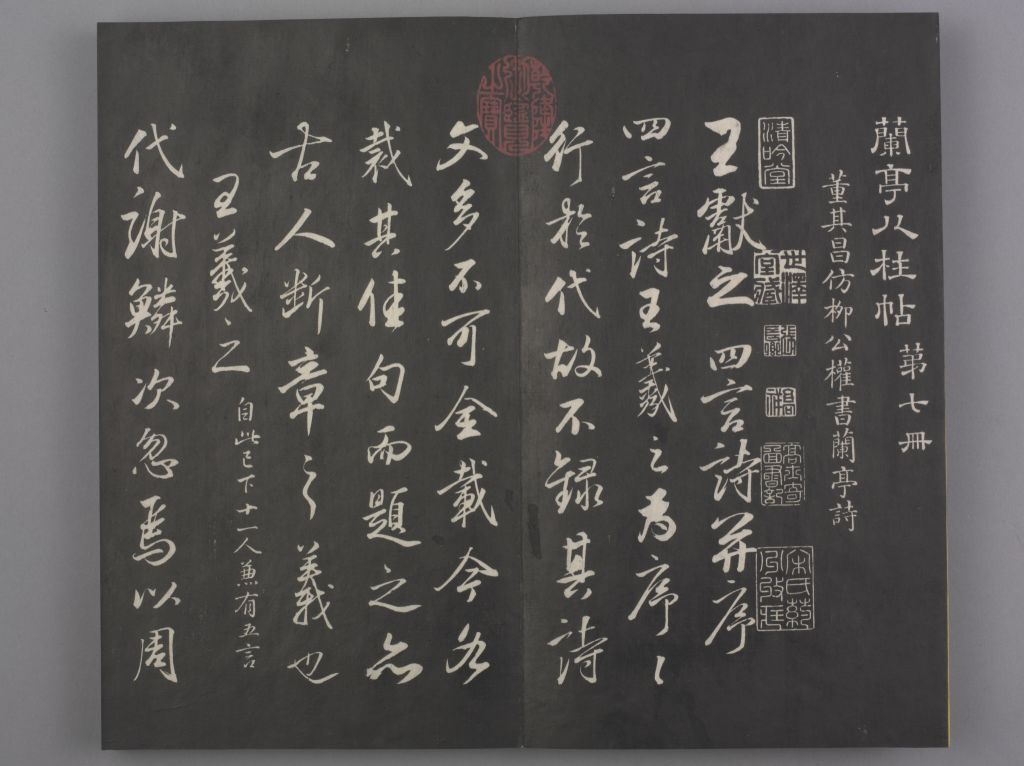 蘭亭八柱帖 第七冊
董其昌仿柳公權書蘭亭詩
清吟堂
王獻之四言詩并序
四言詩王羲之為序〻
行於代故不録其詩
文多不可全載今各
裁其佳句而題之亦
古人断章之義也
王羲之 自此已下十一人兼有五言
代謝鱗次忽焉以周